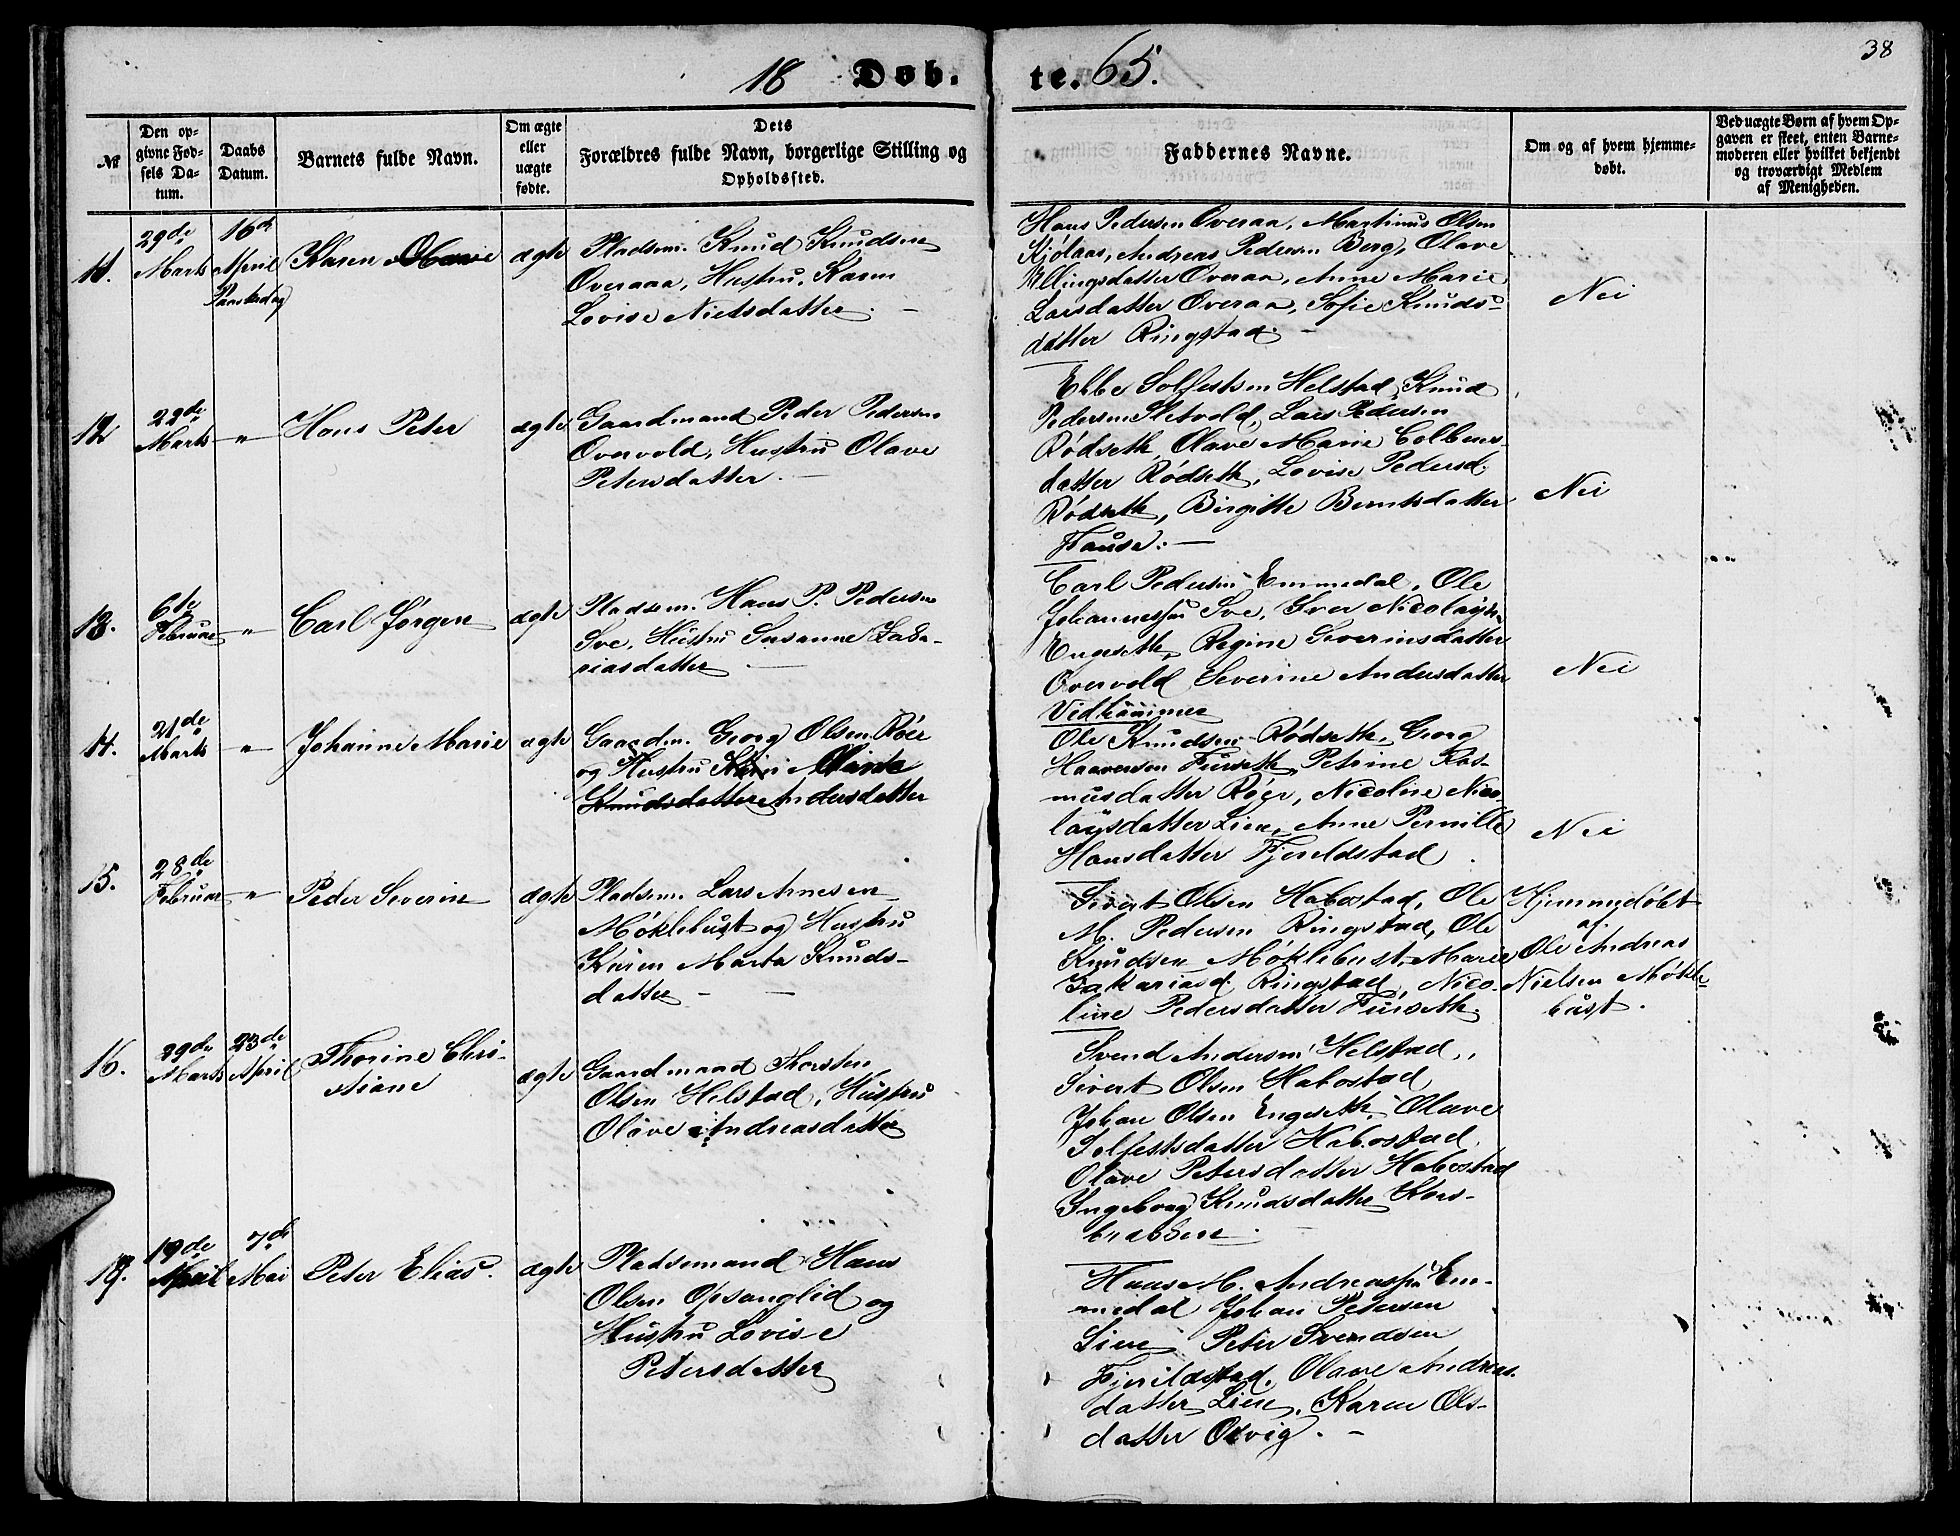 38
18 Døb- te. 65.
№
Den op-
givne Fød-
sels Da-
tum.
Daabs
Datum.
Barnets fulde Navn.
Om ægte
eller
uægte
fødte.
Dets
Forældres fulde Navn, borgerlige Stilling og
Opholdssted.
Faddernes Navne.
Om og af hvem hjemme-
døbt.
Ved uægte Børn af hvem Op-
gaven er skeet, enten Barne-
moderen eller hvilket bekjendt
og troværdigt Medlem
af Menigheden.
11.
29de
Marts
16de
April
Paaskedag
Karen Olave
ægte
Pladsm. Knud Knudsen
Overaaa, Hustru, Karen
Lovise Nielsdatter. —
Hans Pedersen Overaa, Martinus Olsen
Kjølaas, Andreas Pedersen Berg, Olave
Ellingsdatter Overaa, Anne Marie
Larsdatter Overaa, Sofie Knuds-
datter Ringstad. —
Nei
12
22de
Marts
"
Hans Peter
ægte
Gaardmand Peder Pedersen
Overvold, Hustru Olave
Petersdatter. —
Ebbe Solfestsen Helstad, Knud
Pedersen Sletvold, Lars Pedersen
Rødseth, Olave Marie Colbens-
datter Rødseth, Lovise Pedersd.
Rødseth, Birgitte Berntsdatter
Hause. —
Nei
13.
6te
Februar
"
Carl Jørgen
ægte
Pladsm. Hans P. Pedersen
Sve, Hustru Susanne Saka-
riasdatter —
Carl Pedersen Emmedal, Ole
Johannessen Sve, Iver Nicolaysen
Engeseth, Regine Severinsdatter
Overvold, Severine Andersdatter
Vidhammer
Nei
14.
21de
Marts
"
Johanne Marie
ægte
Gaardm. Georg Olsen Røer
og Hustru Marte
Knudsdatter Andersdatter
Ole Knudsen Rødseth, Georg
Haaversen Furseth, Petrine Ras-
musdatter Røer, Nicoline Nico-
laysdatter Lien, Anne Pernille
Hansdatter Fjeldstad.
Nei
15.
28de
Februar
"
Peder Severin
ægte
Pladsm. Lars Arnesen
Møklebust og Hustru
Karen Marta Knuds-
datter —
Sivert Olsen Habostad, Ole
M. Pedersen Ringstad, Ole
Knudsen Møklebust, Marie
Zakariasd. Ringstad, Nico-
line Pedersdatter Furseth.
Hjemmedøbt
af
Ole Andreas
Nielsen Møkle-
bust.
16.
29de
Marts
23de
April
Thorine Chris-
tiane
ægte
Gaardmand Thorsten
Olsen Helstad, Hustru
Olave Andreasdatter
Svend Andersen Helstad,
Sivert Olsen Habostad,
Johan Olsen Engeseth, Olave
Solfestsdatter Habostad,
Olave Petersdatter Habostad
Ingeborg Knudsdatter Kors-
brække
17.
19de
April
7de
Mai
Peter Elias.
ægte
Pladsemand Hans
Olsen Opsanglid og
Hustru Lovise
Petersdatter
Hans M. Andreassen Em-
medal Johan Petersen
Lien Peter Svendsen
Fjerildstad, Olave Andreas-
datter Lien, Karen Ols-
datter Ørvig. —